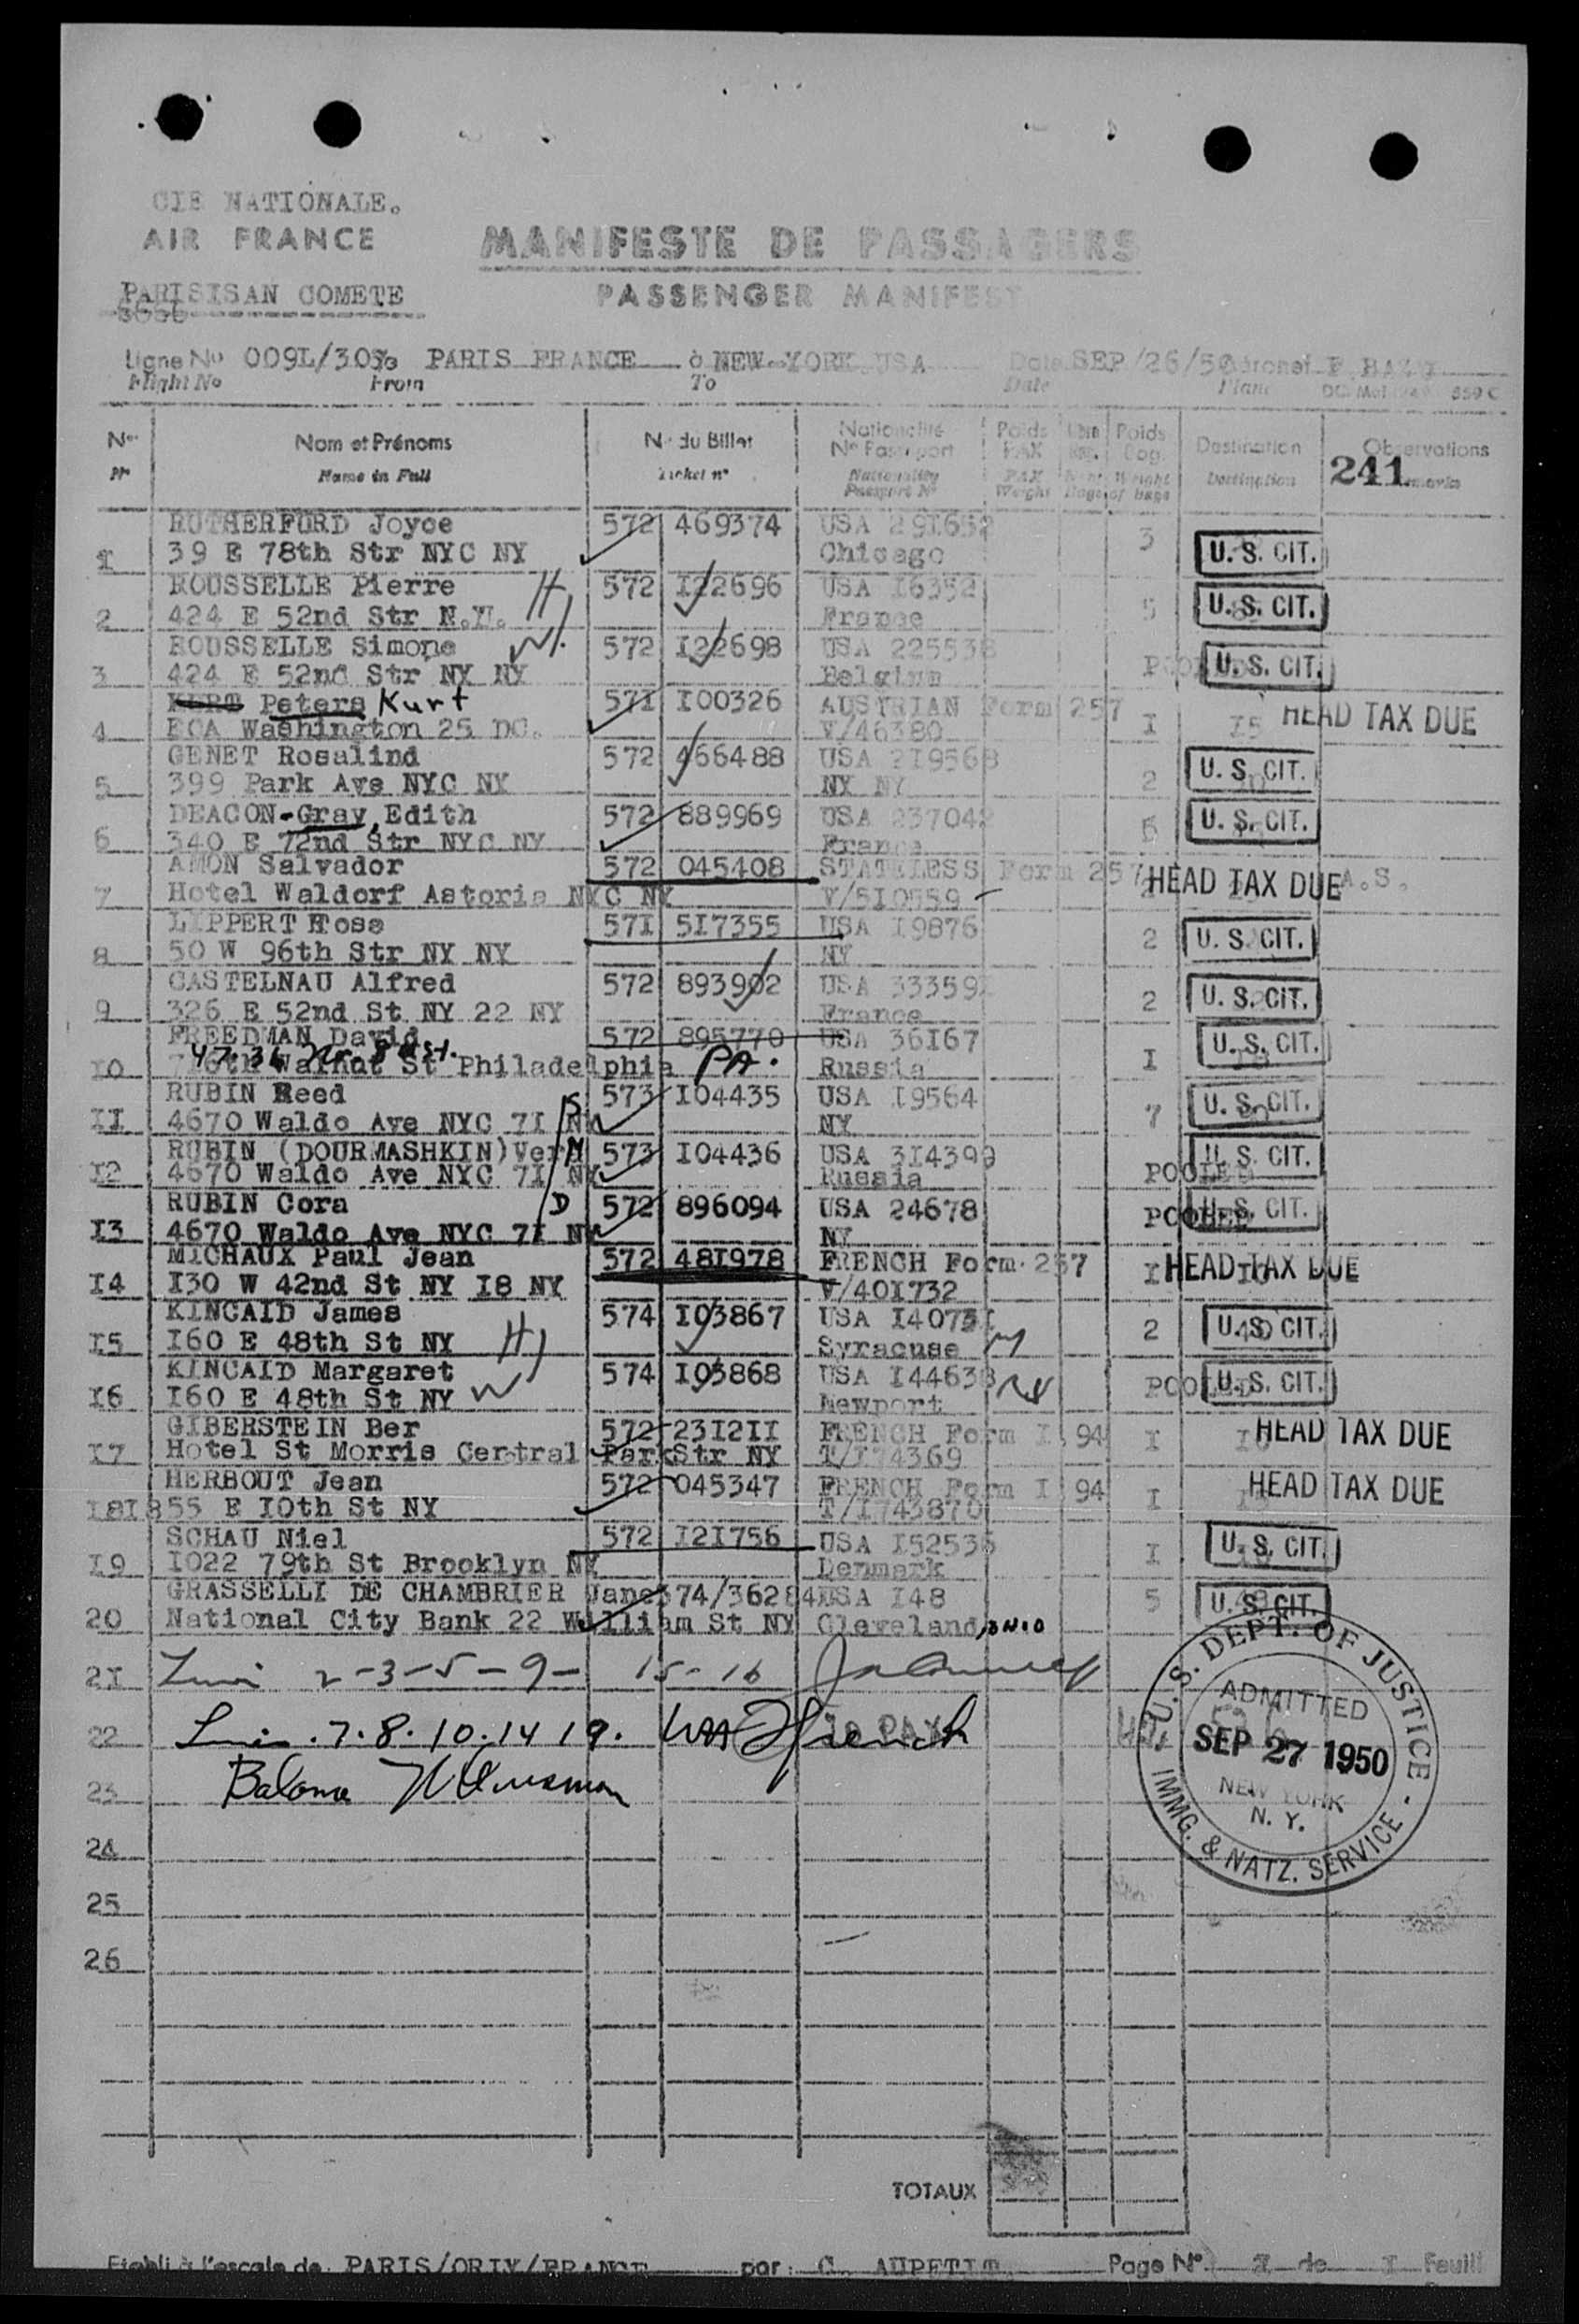 CIE NATIONALE.
AIR FRANCE
MANIFESTE DE PASSAGERS
PARISISAN COMETE
PASSENGER MANIFEST
Ligne No 009L/30 PARIS FRANCE à NEW-YORK USA Date SEP/26/50 Aéronef
Flight No From To Date Plane
No Nom et Prénoms No du Billet Nationalité No Passeport Poids PAX Poids Bag. Destination Observations
Name in Full Ticket no Nationality Passport No PAX Weight Weight of bags Destination 241
RUTHERFORD Joyce 572 469374 USA 291652 3
1 39 E 78th Str NYC NY Chicago U.S. CIT.
ROUSSELLE Pierre H 572 122696 USA 16352
2 424 E 52nd Str N.Y. France 5 U.S. CIT.
ROUSSELLE Simone W. 572 122698 USA 225538
3 424 E 52nd Str NY NY Belgium U.S. CIT.
Peters Kurt 571 100326 AUSTRIAN Form 257
4 ECA Washington 25 DC. V/46380 I 15 HEAD TAX DUE
GENET Rosalind 572 466488 USA 219568
5 399 Park Ave NYC NY NY NY 2 U.S. CIT.
DEACON-Gray, Edith 572 889969 USA 237042
6 340 E 72nd Str NYC NY France 5 U.S. CIT.
AMON Salvador 572 045408 STATELESS Form 257
7 Hotel Waldorf Astoria NYC NY V/510559 HEAD TAX DUE
LIPPERT Rose 571 517355 USA 19876
8 50 W 96th Str NY NY NY 2 U.S. CIT.
CASTELNAU Alfred 572 893902 USA 33359
9 326 E 52nd St NY 22 NY France 2 U.S. CIT.
FREEDMAN David 572 895770 USA 36167
10 Walnut St Philadelphia PA. Russia I U.S. CIT.
RUBIN Reed S 573 104435 USA 19564
11 4670 Waldo Ave NYC 71 NY NY 7 U.S. CIT.
RUBIN (DOURMASHKIN) Vera M 573 104436 USA 314399
12 4670 Waldo Ave NYC 71 NY Russia POOLED U.S. CIT.
RUBIN Cora D 572 896094 USA 24678
13 4670 Waldo Ave NYC 71 NY NY POOLED U.S. CIT.
MICHAUX Paul Jean 572 481978 FRENCH Form 257
14 130 W 42nd St NY 18 NY V/401732 I HEAD TAX DUE
KINCAID James 574 103867 USA 14073
15 160 E 48th St NY H Syracuse NY 2 U.S. CIT.
KINCAID Margaret 574 103868 USA 144638
16 160 E 48th St NY W Newport POOLED U.S. CIT.
GIBERSTEIN Ber 572 231211 FRENCH Form I 94
17 Hotel St Morris Central Park Str NY T/174369 I HEAD TAX DUE
HERBOUT Jean 572 045347 FRENCH Form I 94
18 1855 E 10th St NY T/1743870 I HEAD TAX DUE
SCHAU Niel 572 121756 USA 152535
19 1022 79th St Brooklyn NY Denmark I U.S. CIT.
GRASSELLI DE CHAMBRIER Jane 374/36284 USA 148 5
20 National City Bank 22 William St NY Cleveland U.S. CIT.
21 2-3-5-9- 15-16
22 7.8.10.14 19.
23 Balance
24
25
26
U.S. DEPT. OF JUSTICE
ADMITTED
SEP 27 1950
NEW YORK
N. Y.
IMMG. & NATZ. SERVICE
TOTAUX
Etabli à l'escale de PARIS/ORLY/FRANCE par: C. AUPETIT Page No I de I Feuill